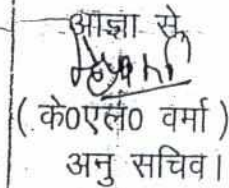 आज्ञा से,
( के०एल० वर्मा )
अनु सचिव।